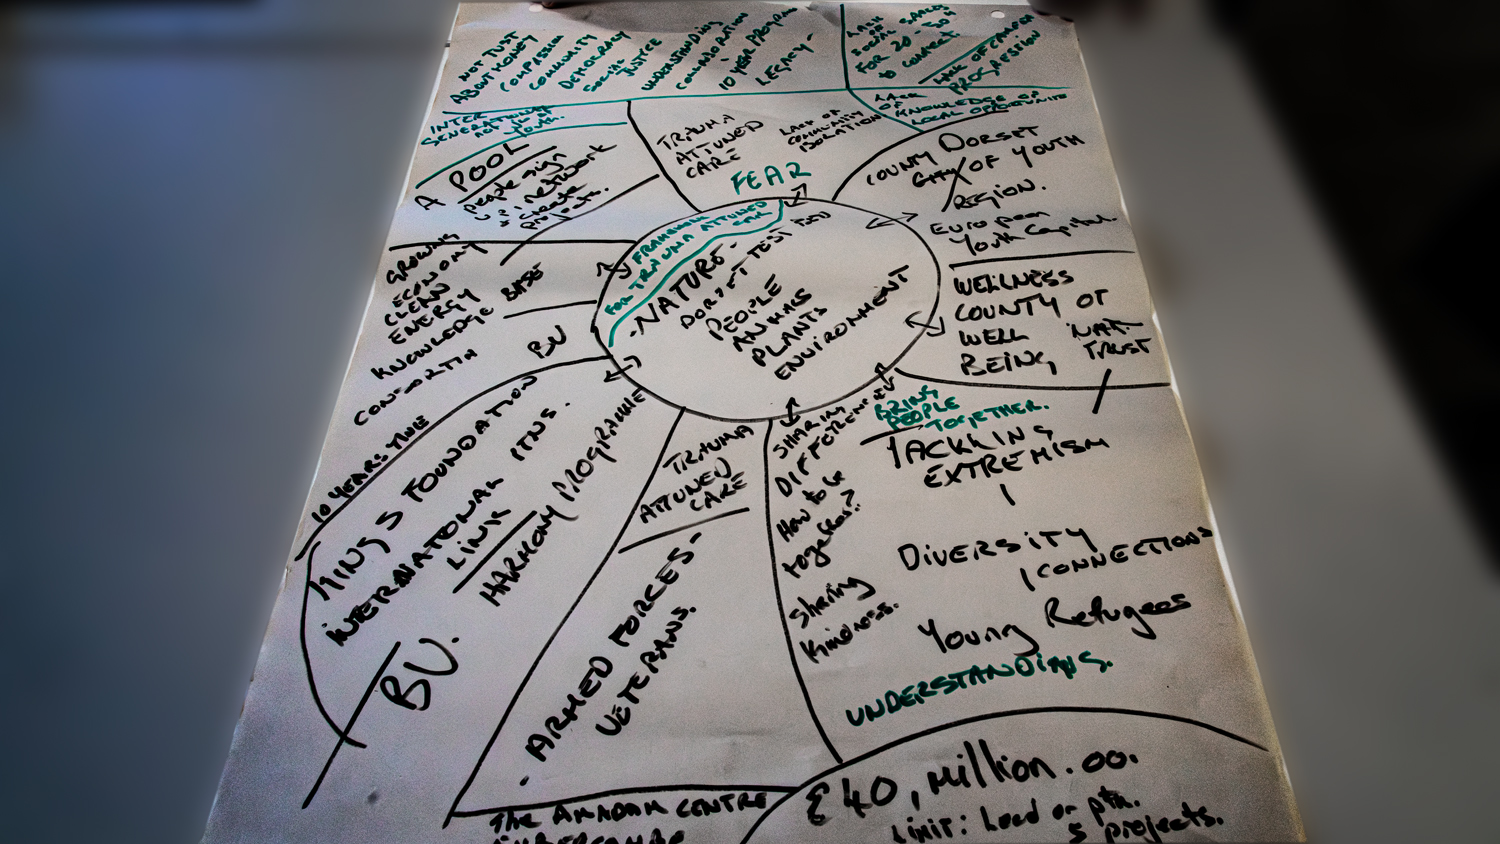 NOT JUST
ABOUT MONEY
COMPASSION
COMMUNITY
DEMOCRACY
SOCIAL
JUSTICE
UNDERSTANDING
10 YEAR PROGRAM
LEGACY-
LACK
OF
SOCIAL SPACES
FOR 20-30'S
to CONNECT
LACK OF CAREER
PROGRESSION
LACK
OF
KNOWLEDGE OF
LOCAL OPPORTUNITIE
INTER
GENERATIONAL
NOT JUST
Youth.
A POOL
People sign
up 2 network
& create
projects.
TRAUMA
ATTUNED
CARE
LACK OF
COMMUNITY
ISOLATION
FEAR
COUNTY DORSET
CITY OF YOUTH
REGION.
European
Youth Capital.
GROWING
ECONOMY
CLEAN
ENERGY
KNOWLEDGE BASE
BU
FRAMEWORK
FOR TRAUMA ATTUNED
CARE
-NATURE-
DON'T TEST
PEOPLE
ANIMALS
PLANTS
ENVIRONMENT
WELLNESS
COUNTY OF
WELL
BEING
NAT-
TRUST
10 YEARS TIME
KING'S FOUNDATION
INTERNATONAL
LINK ITNS.
HARMONY PROGRAMME
BU.
TRAUMA
ATTUNED
CARE
- ARMED FORCES-
VETERANS.
SHARING
DIFFERENCES
How to be
together?
Sharing
Kindness.
BRING
PEOPLE
TOGETHER.
TACKLING
EXTREMISM
DIVERSITY
CONNECTIONS
Young Refugees
UNDERSTANDINGS.
THE CENTRE
£40, Million.00.
Limit: Lead or ptn.
5 projects.